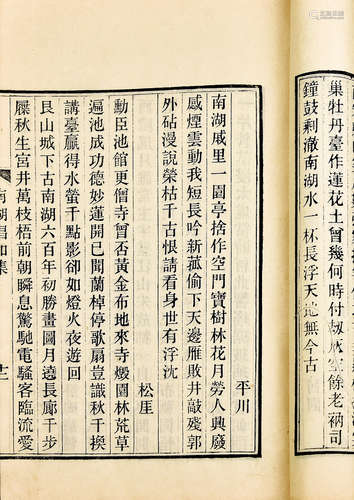 巢牡丹臺作蓮花土曾幾何時付刼灰空餘老衲司
鐘鼓剩澈南湖水一杯長浮天地無今古
平川
南湖戚里一園亭捨作空門寶樹林花月勞人興廢
感煙雲動我短長吟新菰偷下天邊雁敗井敲殘郭
外砧漫說榮枯千古恨請看身世有浮沈
松厓
勳臣池館更僧寺曾否黃金布地來寺燬園林荒草
遍池成功德妙蓮開已聞蘭棹停歌扇豈識秋千換
講臺贏得水螢千點影卻如燈火夜遊回
艮山城下古南湖六百年初勝畫圖月遶長廊千步
屧秋生宮井萬枝梧前朝瞬息驚馳電騷客臨流愛
南湖倡和集